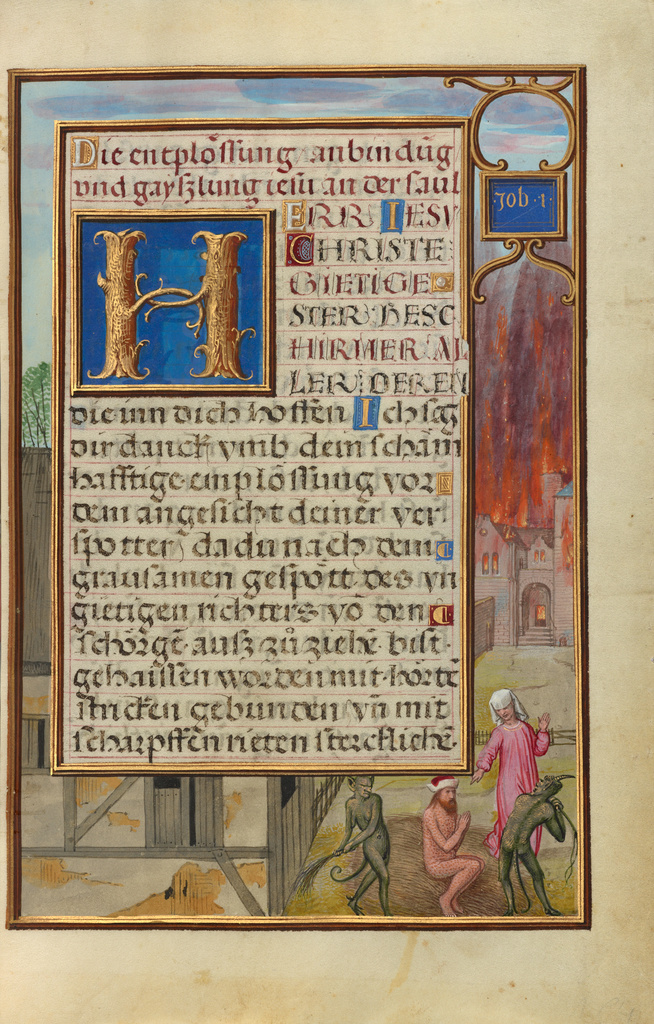 Die entplössung anbindūg
vnd gayszlung iesu an der saul
HERR IESV
CHRISTE
GIETIGE
STER BESC
HIRMER AL
LER DEREN
die inn dich hoffen Ich sag
dir danck vmb dein scham
hafftige emplössung vor
dem angesicht deiner ver
spotter, da du nach dem
grausamen gespött des vn
gietigen richters vō den
schörgē ausz zů ziehē bist
gehaissen worden mit hörtē
stricken gebunden vn̄ mit
scharpffen rieten stercklichē.
Job ·1·